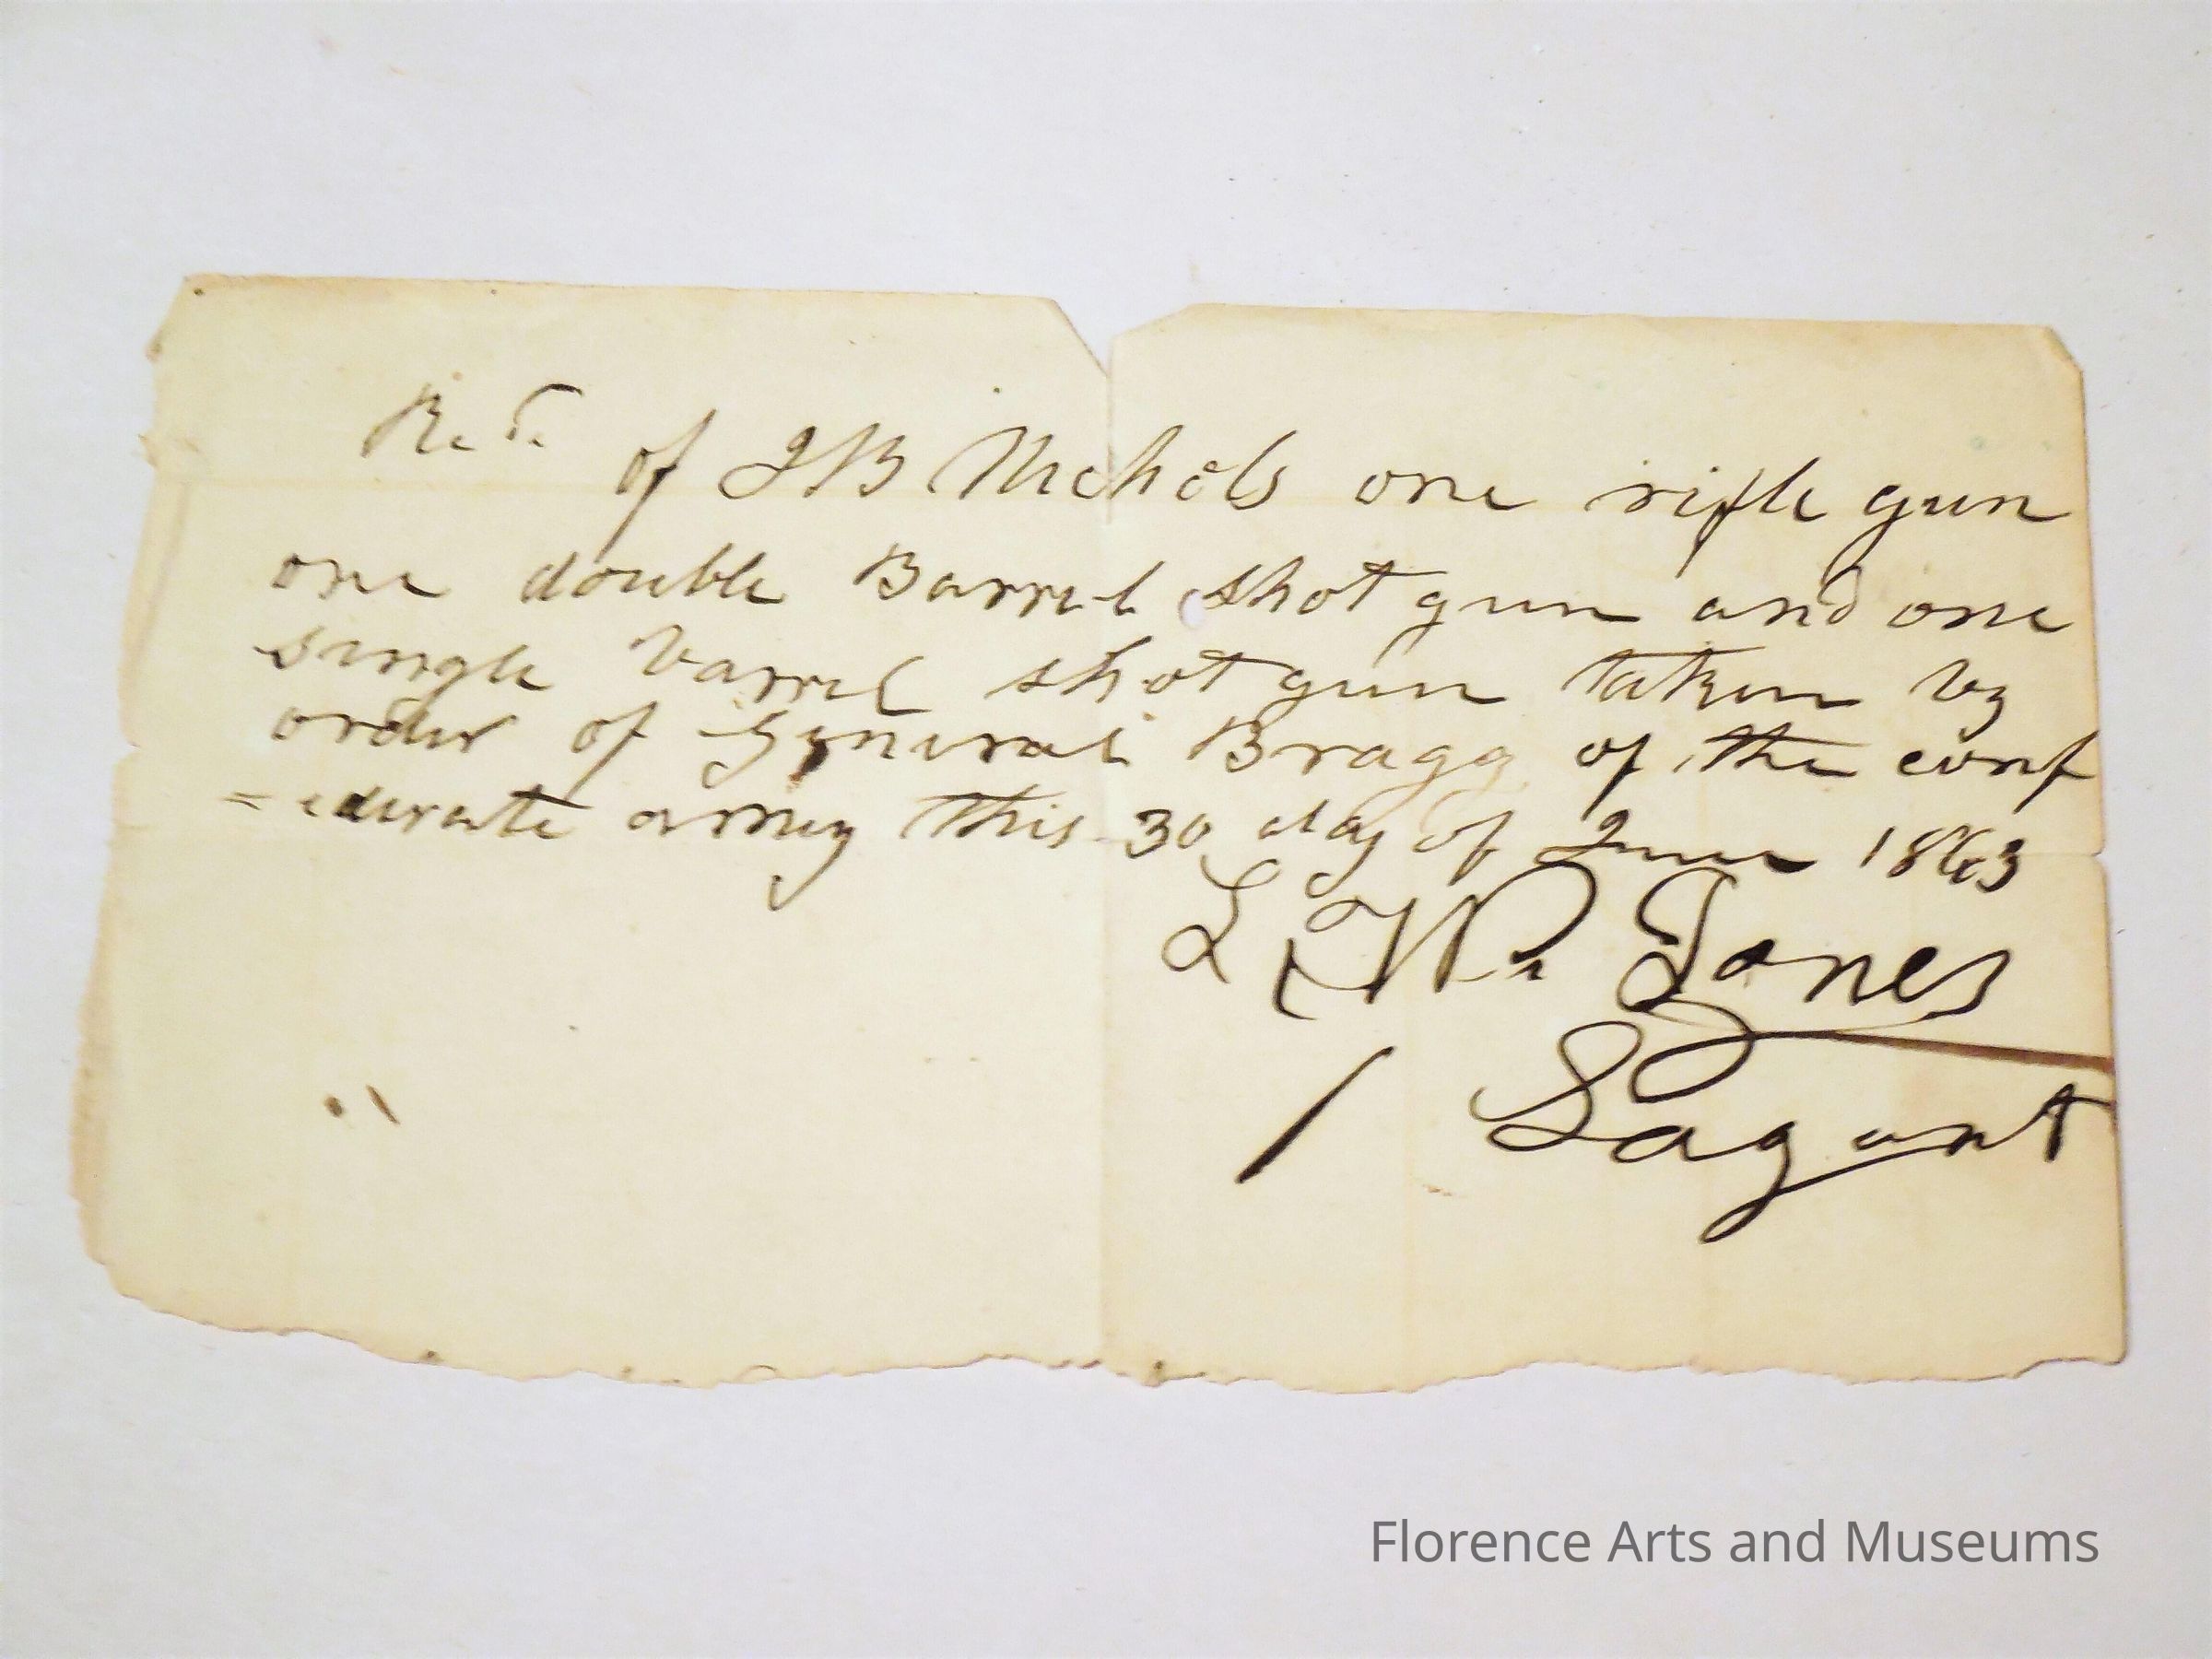 Recd. of JB Nichols one rifle gun
one double Barrel shot gun and one
single barrel shot gun taken by
order of General Bragg of the conf
=ederate army this 30 day of June 1863
L. W. Jones
Sagant
Florence Arts and Museums